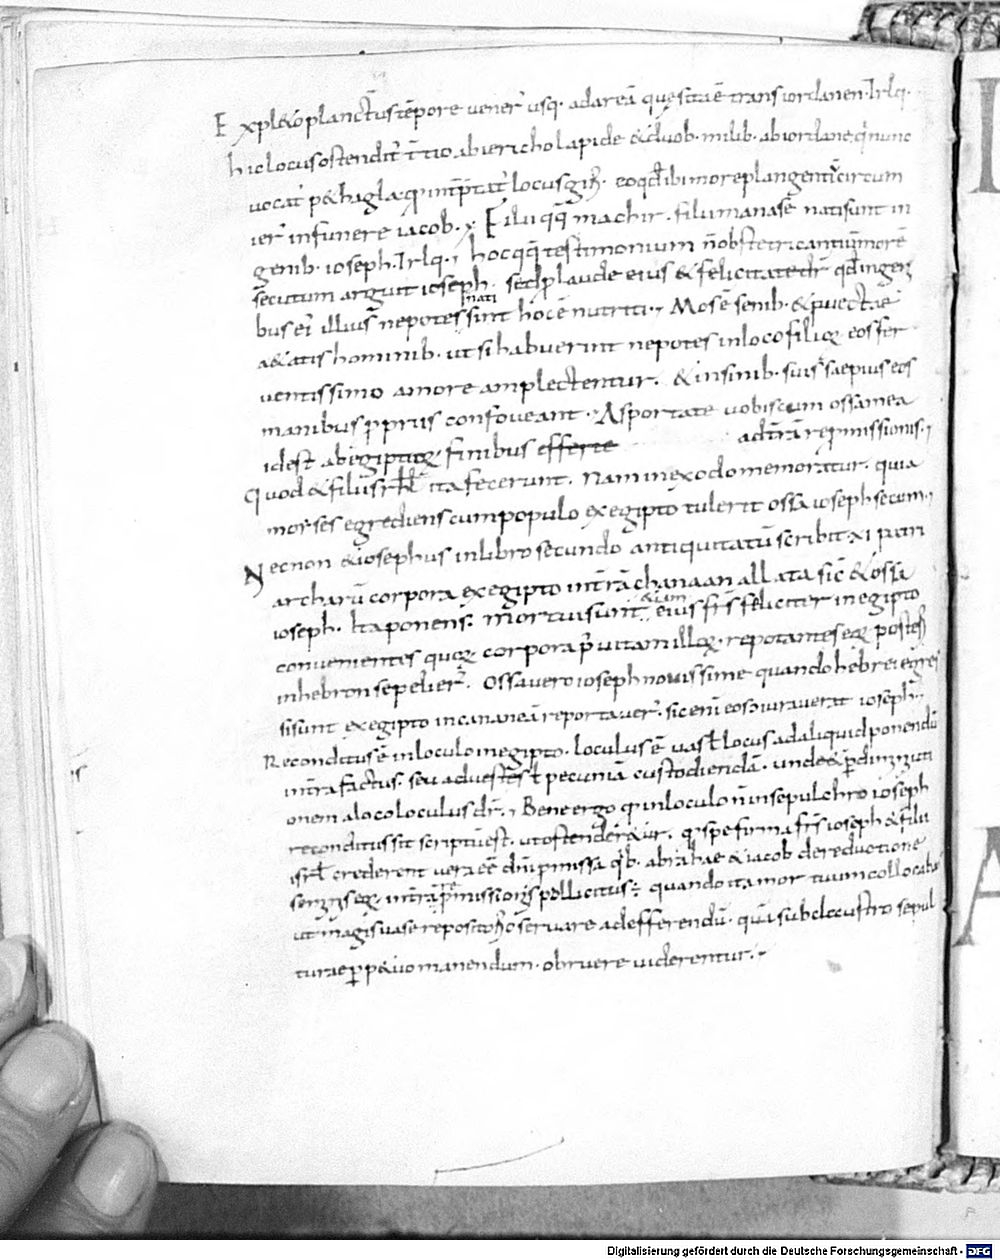 Expl& o planctus tēpore vener usq. ad areā quę sita ē trans iordanen. Irłq.
hic locus ostendit͛ t͛tio ab iericho lapide & duob. milib. ab iordane q nunc
vocat͛ p& hagla q int͛ptat͛ locus giri. eo qđ ibi more plangentiū circum
ier͛ in funere iacob. Filii qq machir. filii manasē nati sunt in
genib. ioseph. Irłq. hoc qq testimonium ñ obstetricantiū morē
secutum arguit ioseph. sed p laude eius & felicitate dr̄ qđ in geni
bus ei illius nepotes nati sint hoc ē nutriti. Mos ē senib. & puectae
a&atis hominib. ut si habuerint nepotes in loco filioꝝ eos fer
uentissimo amore amplectentur. & in sinib. suis saepius eos
manibus ppriis confoueant. Asportate uobiscum ossa mea
id est ab egiptiꝝ finibus efferte ad trā repmissionis.
Quod & filii isrhł ita fecerunt. Nam in exodo memoratur. quia
morses egrediens cum populo ex egipto tulerit ossa ioseph secum.
Necnon & iosephus in libro secundo antiquitatū scribit xi patri
archarū corpora ex egipto in trā chanaan allata sic & ossa
ioseph. Ita ponens. Mortui sunt &iam eius frs feliciter in egipto
convenientes quoꝝ corpora p vitam illoꝝ repotantes eoꝝ posteri
in hebron sepelier͛. Ossa vero ioseph nouissime quando hebrei egres
si sunt ex egipto in cananeā reportaver͛. sic eni eos iuraverat ioseph.
Reconditus ē in loculo in egipto. loculus ē uas ł locus ad aliquid ponendū
intra factus. seu ad uestes ł pecuniā custodiendā. unde & p
onem a loco loculus dr̄. Bene ergo q in loculo ñ in sepulchro ioseph
reconditus sit scriptū est. ut ostender&ur. q spe firma frs ioseph & filii
isrł crederent vera eē dni pmissa qb. abrahae & iacob de reductione
eoꝝ in trā pmissionis pollicitus. quando ita mortuum collocaba
ut magis uase repositorio servare ad efferendū. quā sub claustro sepul
turae p p&uo manendum. obruere viderentur.
Digitalisierung gefördert durch die Deutsche Forschungsgemeinschaft - DFG